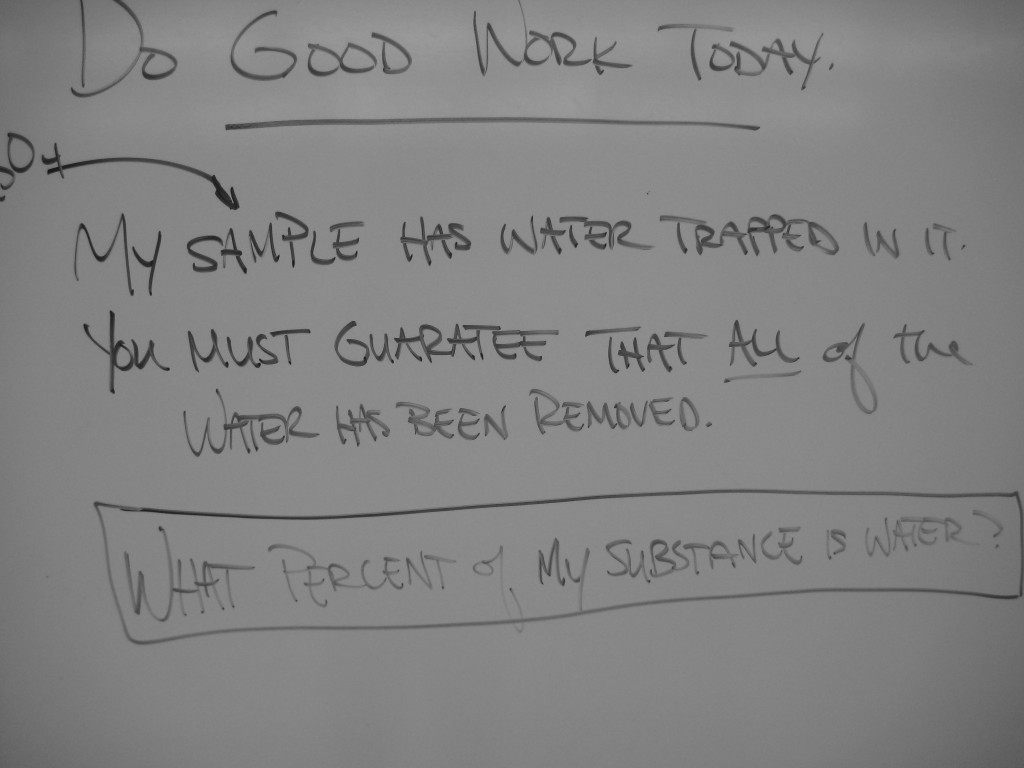 DO GOOD WORK TODAY.
O4
MY SAMPLE HAS WATER TRAPPED IN IT.
YOU MUST GUARATEE THAT ALL of the
WATER HAS BEEN REMOVED.
WHAT PERCENT of MY SUBSTANCE IS WATER?